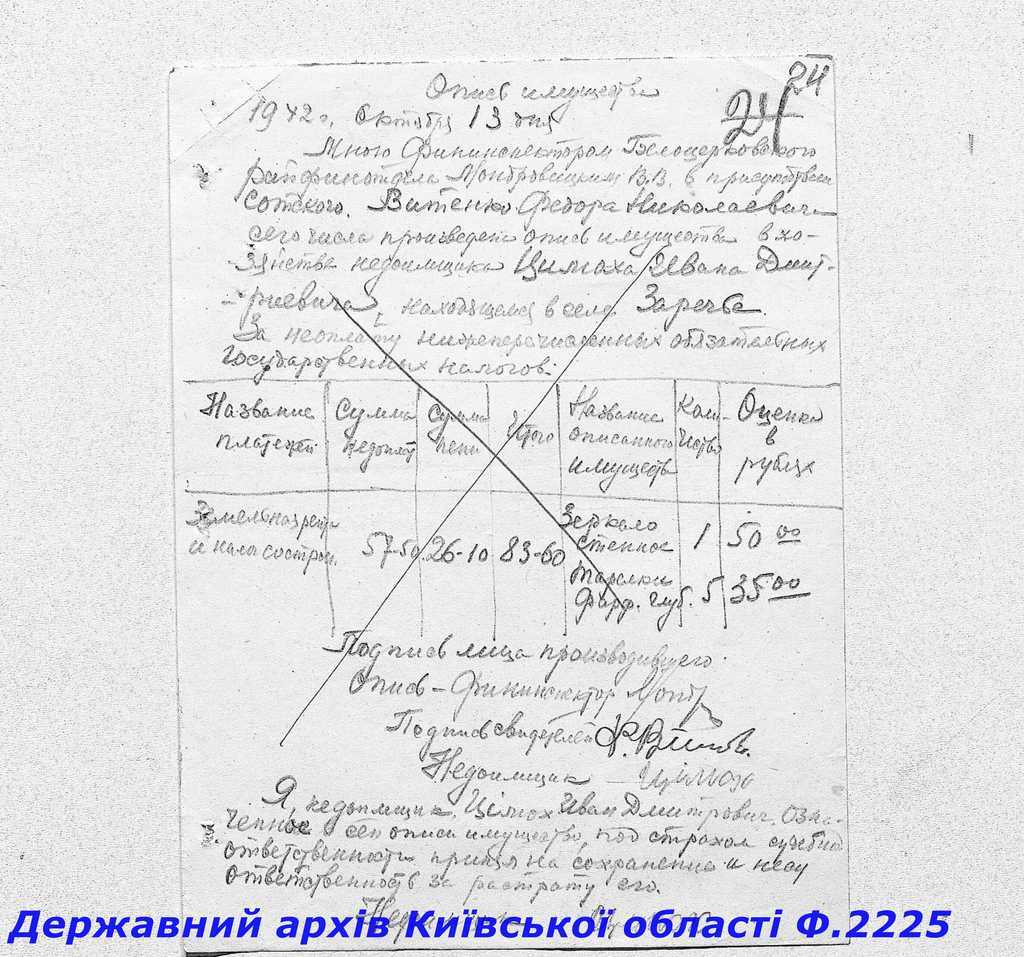 24
24
Опись имущества
1942 г. Октября 13 дня
Мною Фининспектором Белоцерковского
райфинотдела В.В. в присутствии
Сотского. Витенко Федора Николаевича
сего числа произведена опись имущества в хо-
зяйстве недоимщика Цилюха Ивана Дмит-
-риевича, находящемся в селе Заречье.
За неоплату нижеперечисленных обязательных
государственных налогов:
Название платежей
Сумма недоплат
Сумма пени
Итого
Название описанного имуществ
Коли-чество
Оценка в рублях
Земельная рента и налог со строен.
57-50
26-10
83-60
Зеркало стенное
1
50 00
Тарелки фарф. глуб.
5
35 00
Подпись лица производившего
Опись – Фининспектор
Подпись свидетелей
Недоимщик – Цілюх
Я, недоимщик Цілюх Иван Дмитрович, озна-
ченное в сей описи имущество, под страхом судебной
ответственности принял на сохранение и несу
ответственность за растрату его.
Державний архів Київської області Ф.2225